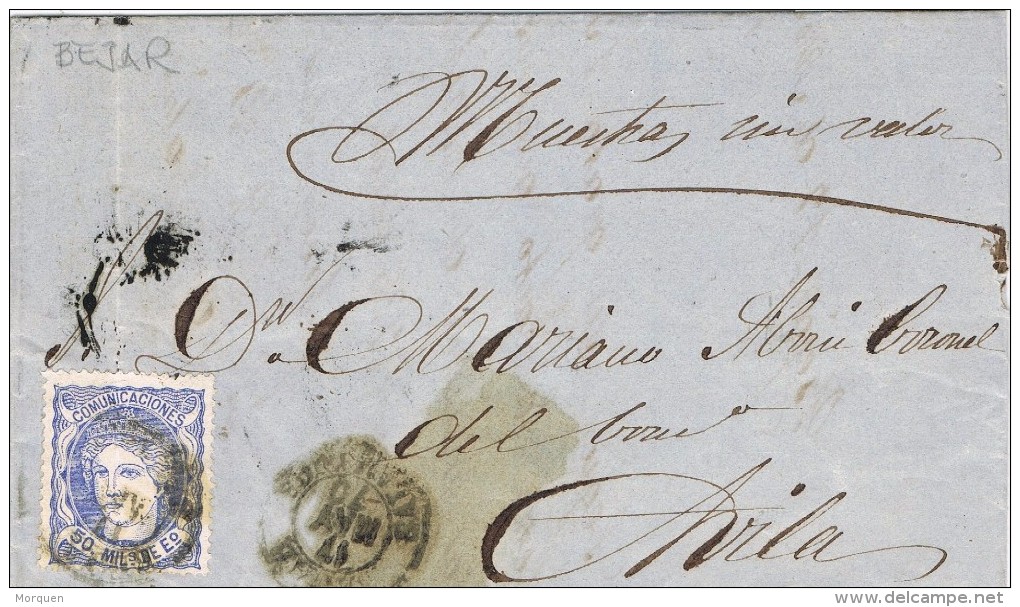 BEJAR
Muestras sin valor
Dn. Mariano Coronel
del
Avila
COMUNICACIONES
50 MILS. DE EO.
Morquen
www.delcampe.net